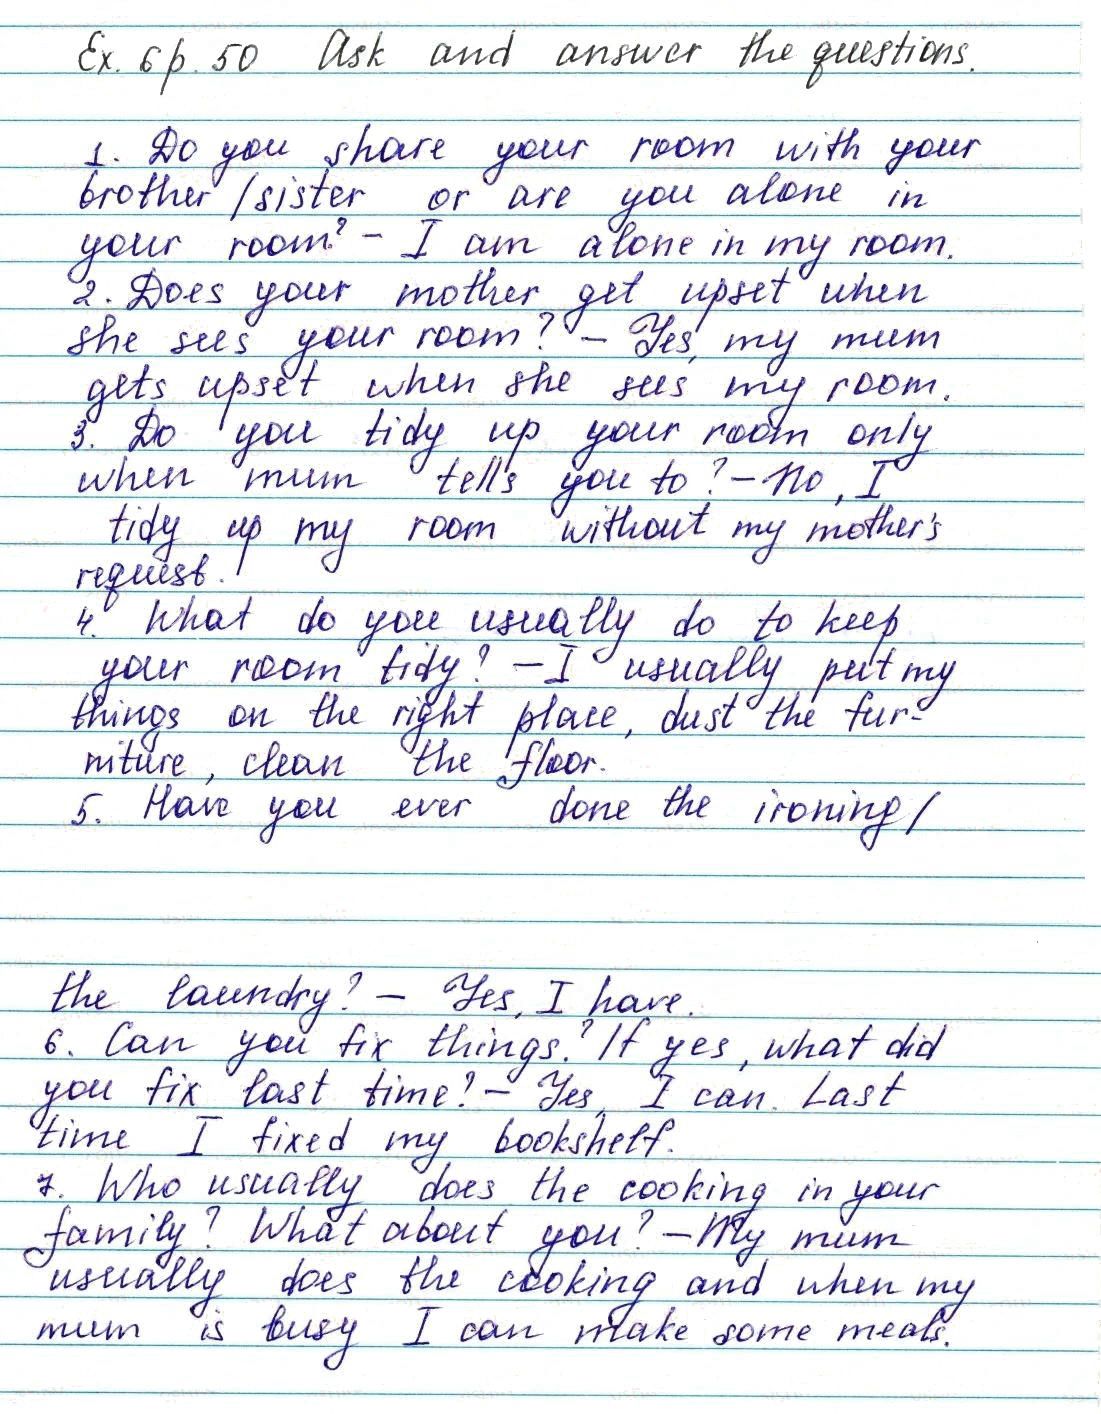 Ex. 6 p. 50 Ask and answer the questions.
1. Do you share your room with your
brother / sister or are you alone in
your room? – I am alone in my room.
2. Does your mother get upset when
she sees your room? – Yes, my mum
gets upset when she sees my room.
3. Do you tidy up your room only
when mum tells you to? – No, I
tidy up my room without my mother's
request.
4. What do you usually do to keep
your room tidy? – I usually put my
things on the right place, dust the fur-
niture, clean the floor.
5. Have you ever done the ironing /
the laundry? – Yes, I have.
6. Can you fix things? If yes, what did
you fix last time? – Yes, I can. Last
time I fixed my bookshelf.
7. Who usually does the cooking in your
family? What about you? – My mum
usually does the cooking and when my
mum is busy I can make some meals.